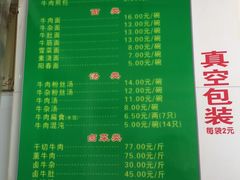 牛肉煎包
面类
牛肉面 16.00元/碗
牛杂面 12.00元/碗
牛肚面 13.00元/碗
牛筋面 13.00元/碗
雪菜面 8.00元/碗
素浇面 7.00元/碗
阳春面 5.00元/碗
汤类
牛肉粉丝汤 14.00元/碗
牛杂粉丝汤 12.00元/碗
牛肉汤 11.00元/碗
牛杂汤 8.00元/碗
牛肉扁食 6.50元/两(7只)
牛肉混沌 5.00元/碗(14只)
卤菜类
干切牛肉 77.00元/斤
熏牛肉 75.00元/斤
卤牛杂 30.00元/斤
卤牛肚 45.00元/斤
真空包装
每袋2元